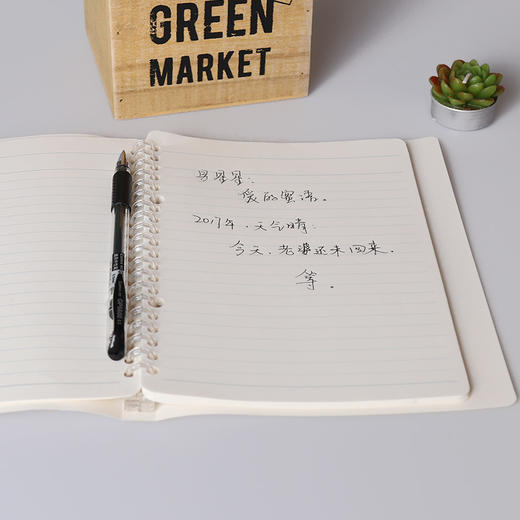 GREEN
MARKET
爱的蜜语。
2017年.天气晴:
今天.老婆还未回来.
等。